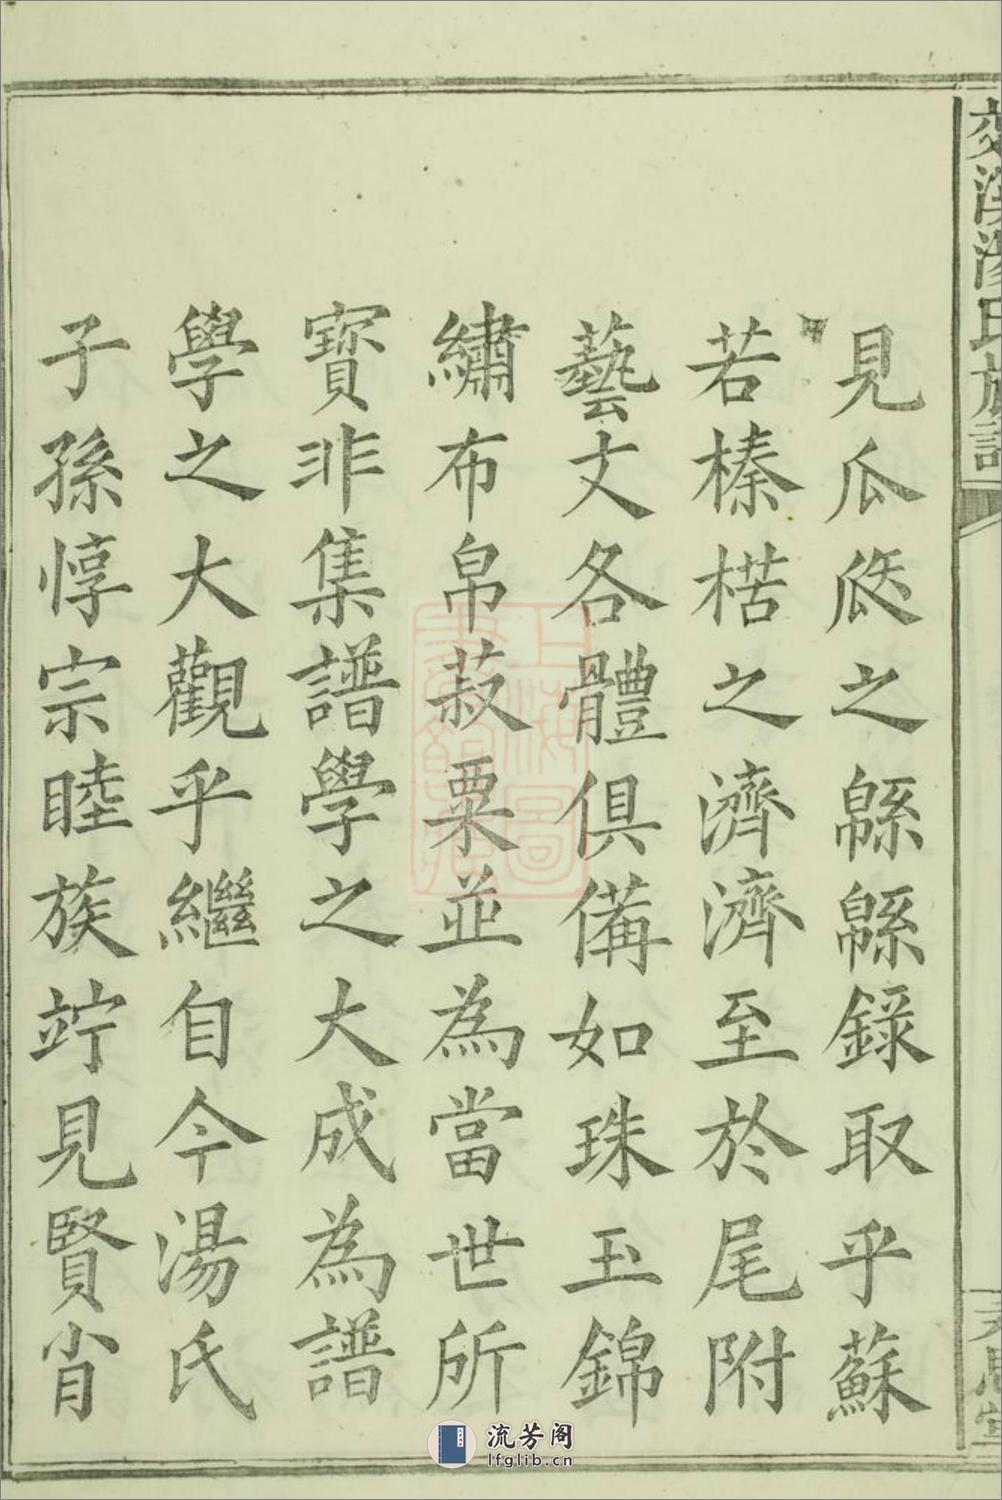 見瓜瓞之緜緜錄取乎蘇
若榛楛之濟濟至於尾附
藝文各體俱備如珠玉錦
繡布帛菽粟並為當世所
寳非集譜學之大成為譜
學之大觀乎繼自今湯氏
子孫惇宗睦族竚見賢省
湯氏族譜
上海圖
流芳阁
lfglib.cn